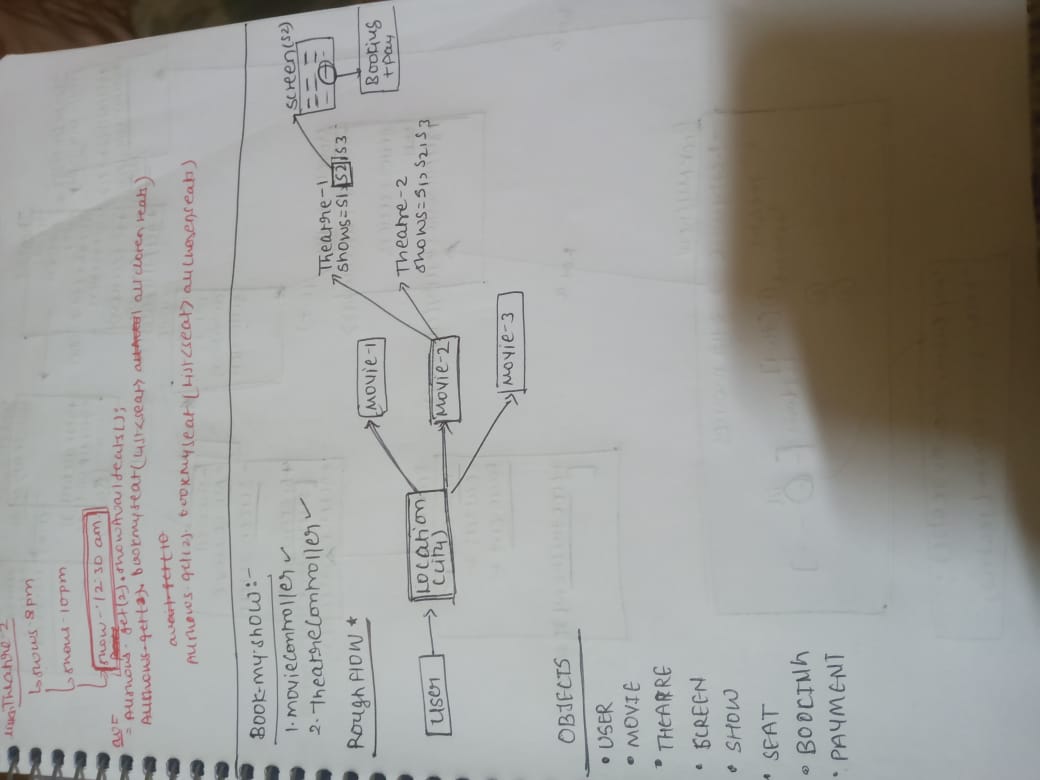 Theatre-2
↳ shows-8pm
↳ shows-10pm
↳ show-12:30 am
= Allshows.get(2).showAvailseats();
Allshows.get(2).bookmyseat(List<seat> allchosenseats)
Allshows.get(2).bookmyseat(List<seat> allchosenseats)
BOOK-my-show:-
1. movieController ✓
2. TheatreController ✓
Rough Flow *
User
Location
(city)
Movie-1
Movie-2
Movie-3
Thearre-1
shows=S1,S2,S3
Theatre-2
shows=S1,S2,S3
Screen(S2)
Booking
+pay
OBJECTS
• USER
• MOVIE
• THEARRE
• SCREEN
• SHOW
• SEAT
• BOOCINh
• PAYMENT